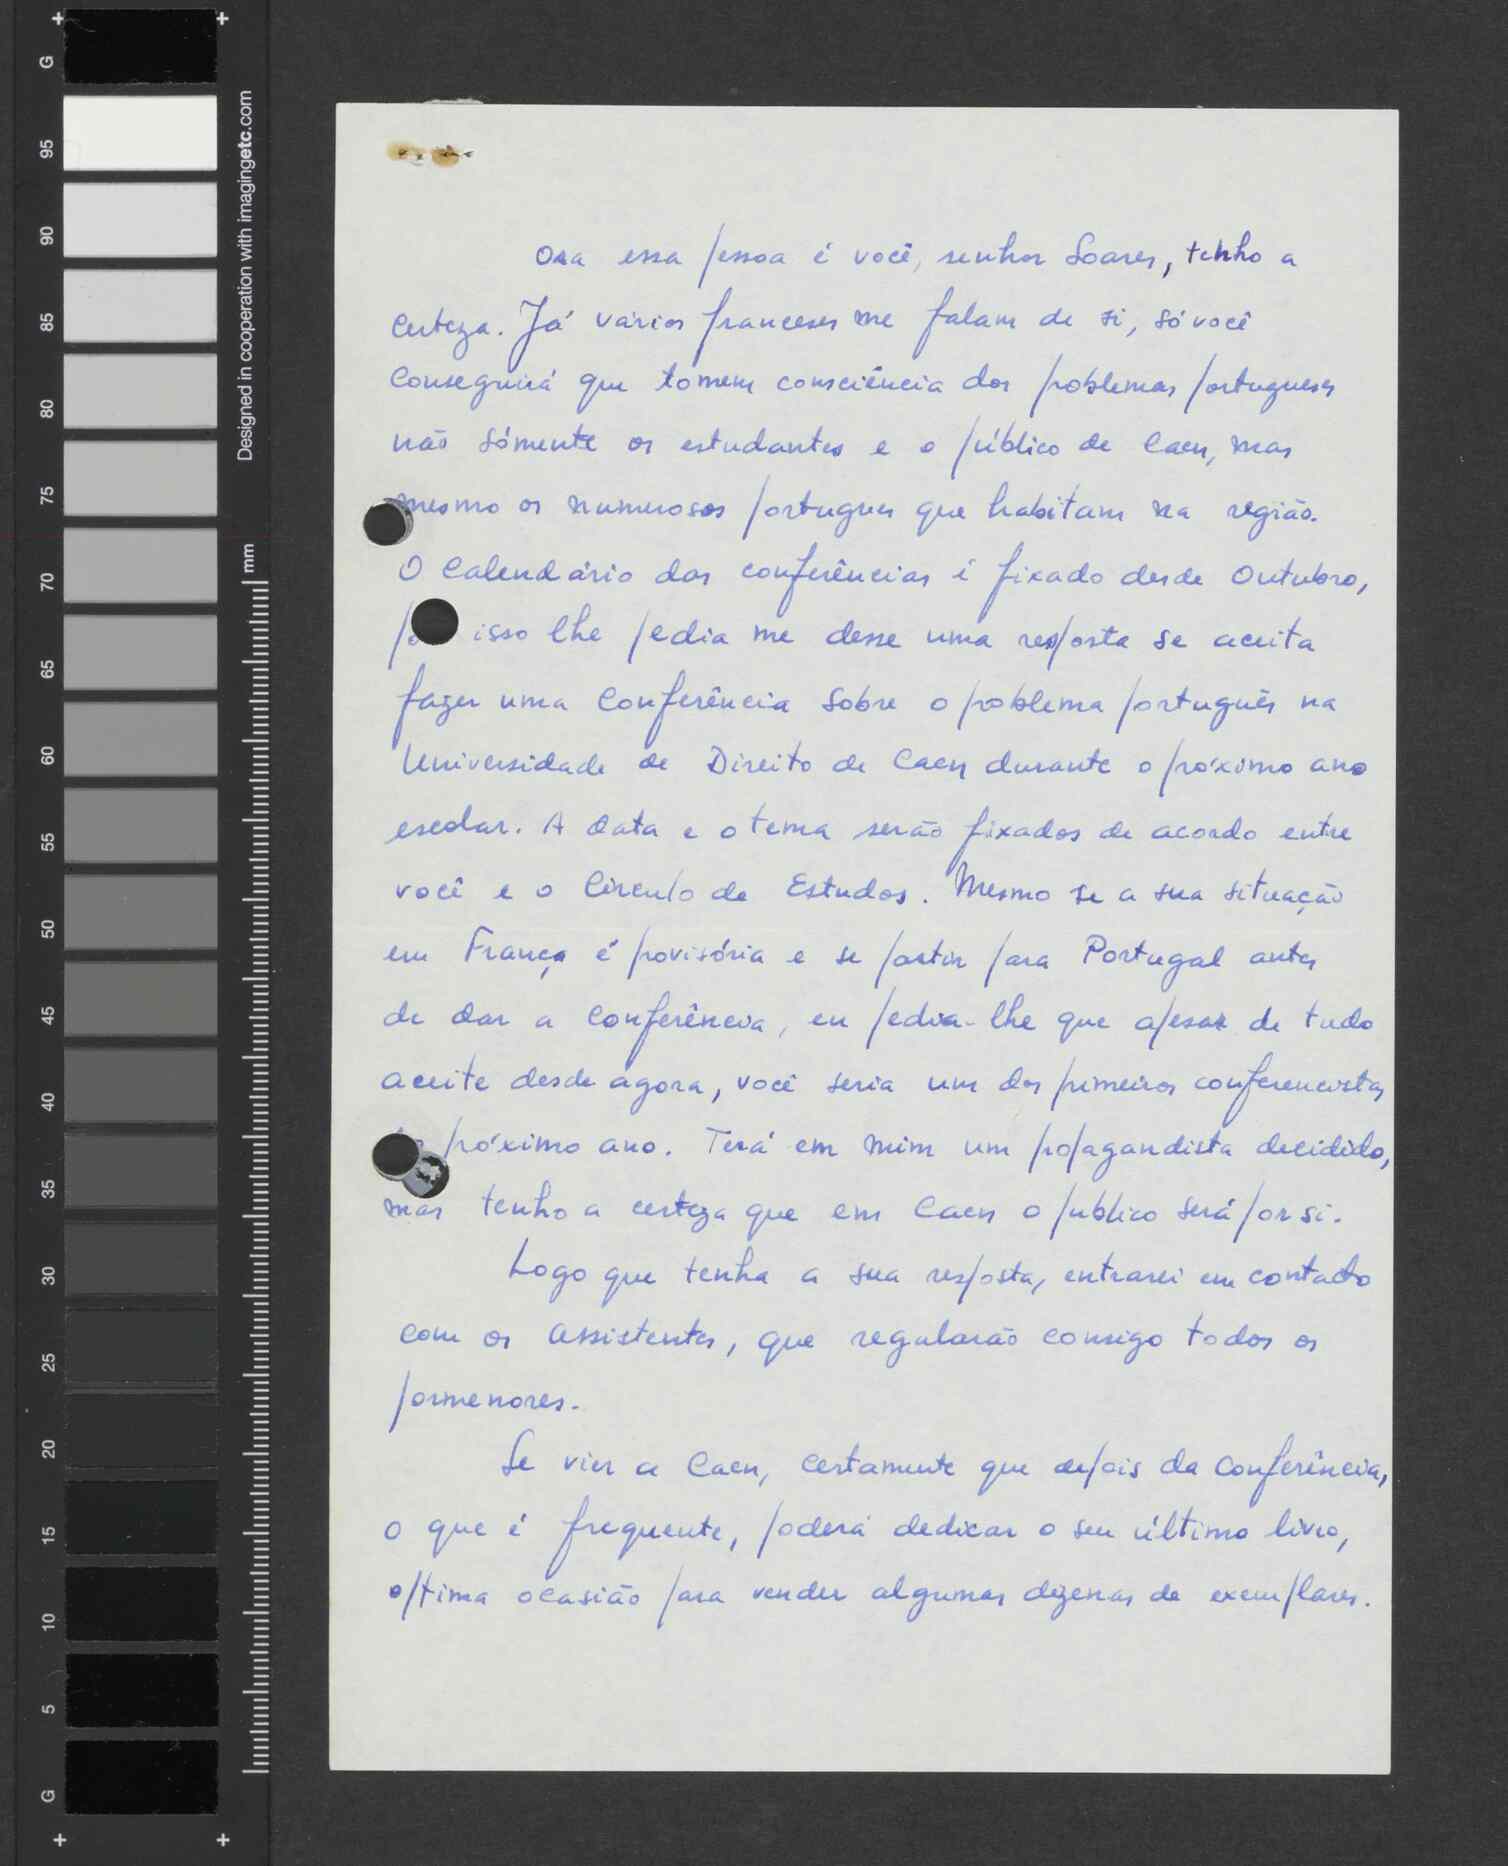 G
95
90
85
80
75
70
65
60
55
50
45
40
35
30
25
20
15
10
5
G
Designed in cooperation with imagingetc.com
mm
Ora essa pessoa é você, senhor Soares, tenho a
certeza. Já varios franceses me falam de si, só você
conseguirá que tomem consciência dos problemas portugueses
não sómente os estudantes e o público de Caen, mas
mesmo os numerosos portugues que habitam na região.
O Calendário das conferências é fixado desde Outubro,
isso lhe pedia me desse uma resposta se aceita
fazer uma Conferência sobre o problema português na
Universidade de Direito de Caen durante o próximo ano
escolar. A data e o tema serão fixados de acordo entre
você e o Circulo de Estudos. Mesmo se a sua situação
em França é provisória e se partir para Portugal antes
de dar a conferência, eu pedia-lhe que apesar de tudo
aceite desde agora, você seria um dos primeiros conferencistas
próximo ano. Terá em mim um propagandista decidido,
mas tenho a certeza que em Caen o publico será por si.
Logo que tenha a sua resposta, entrarei em contacto
com os assistentes, que regularão consigo todos os
pormenores.
Se vier a Caen, certamente que depois da conferência,
o que é frequente, poderá dedicar o seu último livro,
optima ocasião para vender algumas dezenas de exemplares.